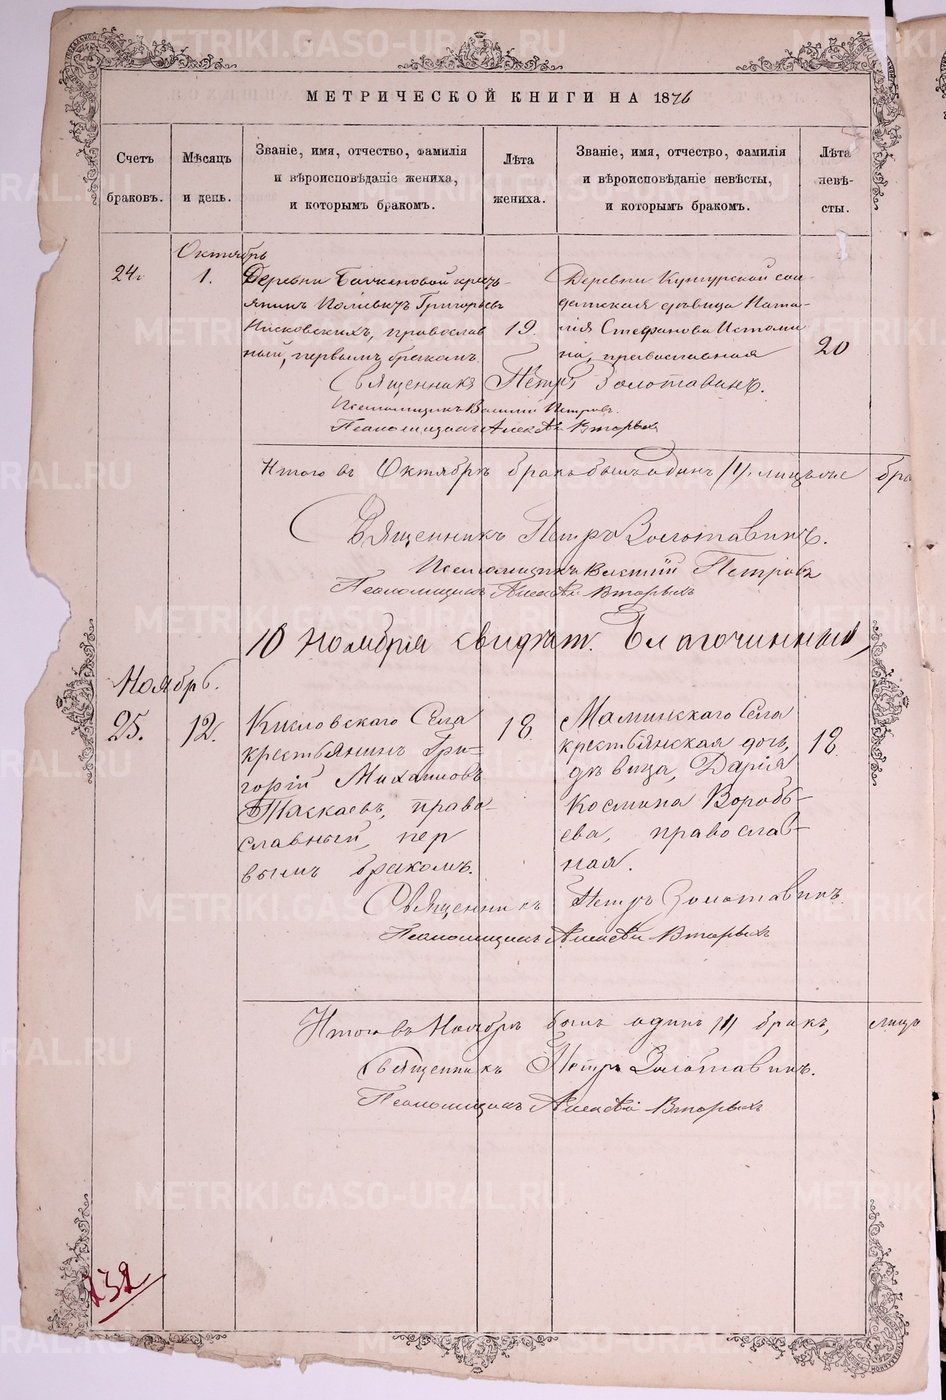 МЕТРИЧЕСКОЙ КНИГИ НА 1876
Счетъ
браковъ.
Мѣсяцъ
и день.
Званіе, имя, отчество, фамилія
и вѣроисповѣданіе жениха,
и которымъ бракомъ.
Лѣта
жениха.
Званіе, имя, отчество, фамилія
и вѣроисповѣданіе невѣсты,
и которымъ бракомъ.
Лѣта
невѣ-
сты.
Октябрь
24.
1.
Деревни кресть-
янинъ Григорьевъ
православ
ный, первымъ бракомъ.
19
Деревни сол
датская дѣвица Ната
лія Стефанова Истоми
на, православная
20
Священникъ Петръ Золотавинъ.
Псаломщикъ Василій Петровъ.
Псаломщикъ Алексѣй Вторыхъ
Итого въ Октябрѣ бракъ былъ одинъ /1/
Священникъ Петръ Золотавинъ.
Псаломщикъ Василій Петровъ
Псаломщикъ Алексѣй Вторыхъ
10 Ноября свидѣт. Благочинный
Ноябрь.
25.
12.
Кисловскаго Села
крестьянинъ Гри-
горій Михаиловъ
Таскаевъ, право-
славный, пер
вымъ бракомъ.
18
Маминскаго Села
крестьянская дочь,
дѣвица, Дарія
Космина Воробь-
ева, православ-
ная.
18.
Священникъ Петръ Золотавинъ.
Псаломщикъ Алексѣй Вторыхъ
Итого въ Ноябрѣ былъ одинъ /1/ бракъ, лицъ
Священникъ Петръ Золотавинъ.
Псаломщикъ Алексѣй Вторыхъ
232
METRIKI.GASO-URAL.RU